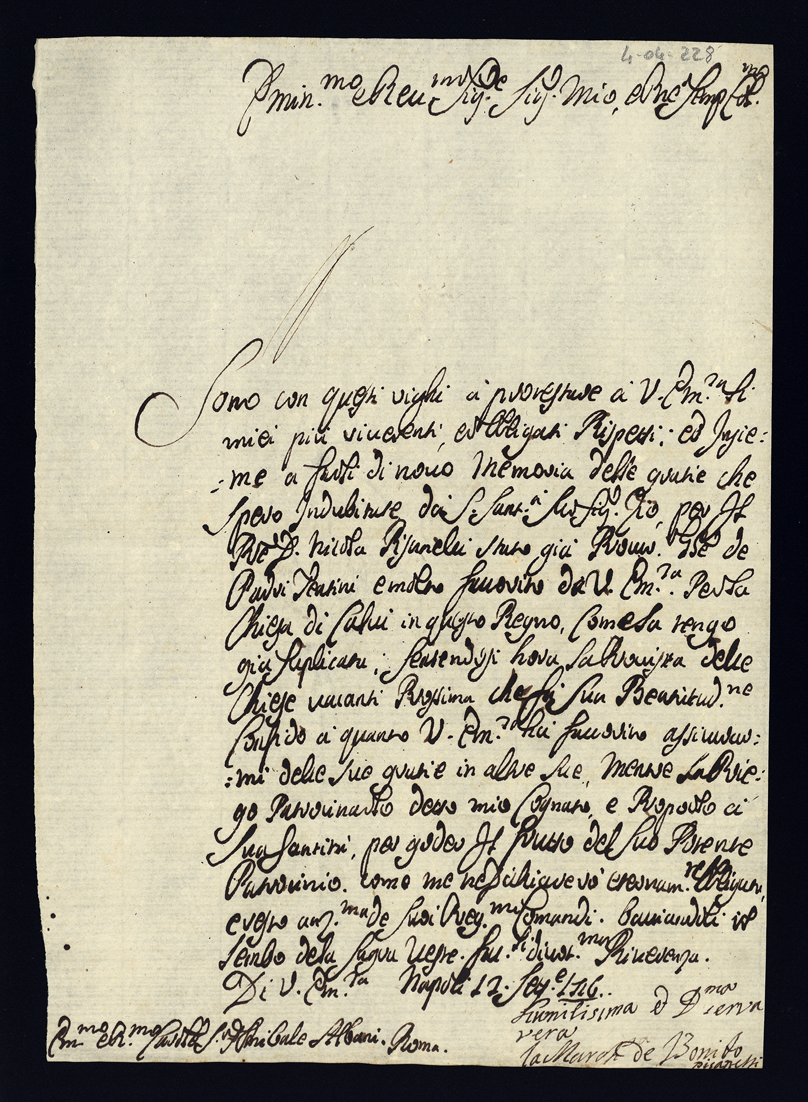 4-04-228
Emin.mo e Reu.mo Sig.re Sig. Mio, e Pne Semp Col.mo
Sono con questi righi a protestare a V. Em.za li
miei piu riuerenti, ed obligati Rispetti; ed Insie:
:me a farli di nouo Memoria delle gratie che
spero Indubitate da S. Sant.a Suo Sig. Zio, per Il
Pre D. Nicola Pisanelli stato già Prou.le de
Padri Teatini e molto fauorito da V. Em.za Per la
Chiesa di Calui in questo Regno, Come la tengo
già suplicata; sentendosi hora la Prouista delle
Chiese uacanti Prossima che fà Sua Beatitud.ne
Confido a quanto V. Em.za hà fauorito assicurar:
:mi delle sue gratie in altre sue, mentre la Prie:
go Patrocinarlo detto mio Cognato, e Proporlo a
Sua Santità, per goder Il frutto del suo Potente
Patrocinio. come me ne dichiarerò eternam.te obligata,
e resto de suoi Comandi. baciandoli il
lembo dela sagra Ueste. Riuerenza.
Di V. Em.za Napoli 12. 1716.
Humilisima ed D.ma serva
vera
la March. de Bonito
Pisanelli
Em.mo e R.mo Sig. Card.le Annibale Albani. Roma.